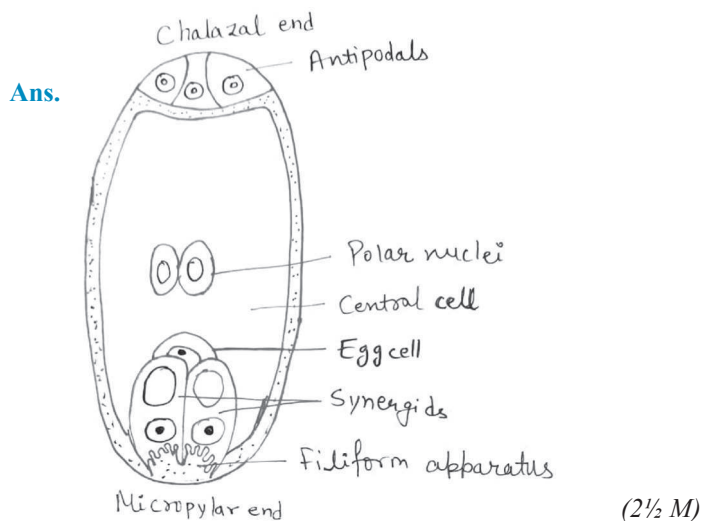 Chalazal end
Antipodals
Ans.
Polar nuclei
Central cell
Egg cell
Synergids
Filiform apparatus
Micropylar end
(2½ M)